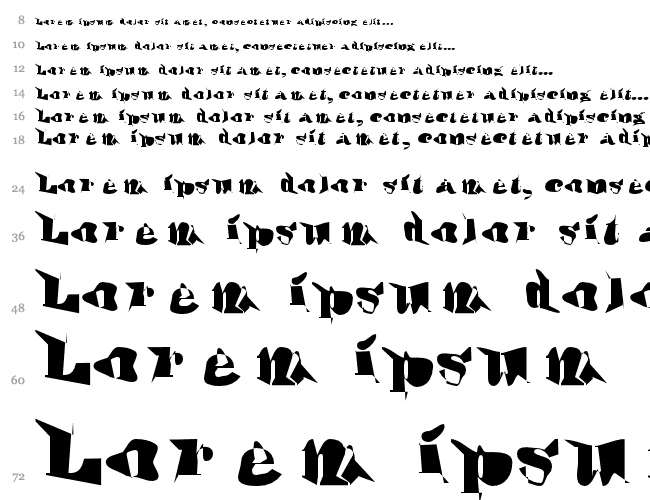 8 Lorem ipsum dolor sit amet, consectetuer adipiscing elit...
10 Lorem ipsum dolor sit amet, consectetuer adipiscing elit...
12 Lorem ipsum dolor sit amet, consectetuer adipiscing elit...
14 Lorem ipsum dolor sit amet, consectetuer adipiscing elit...
16 Lorem ipsum dolor sit amet, consectetuer adipiscing
18 Lorem ipsum dolor sit amet, consectetuer adip
24 Lorem ipsum dolor sit amet, consec
36 Lorem ipsum dolor sit a
48 Lorem ipsum dolo
60 Lorem ipsum
72 Lorem ipsu